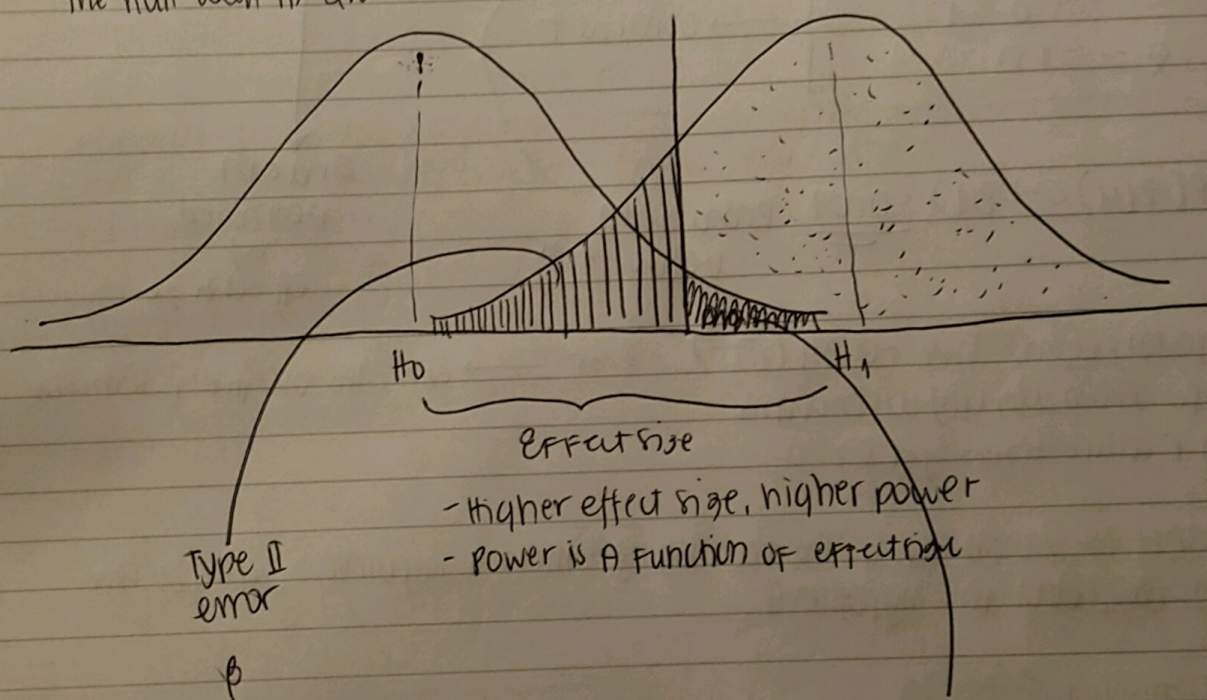 H0
H1
Effect size
- Higher effect size, higher power
- Power is A function of effect size
Type II
error
β